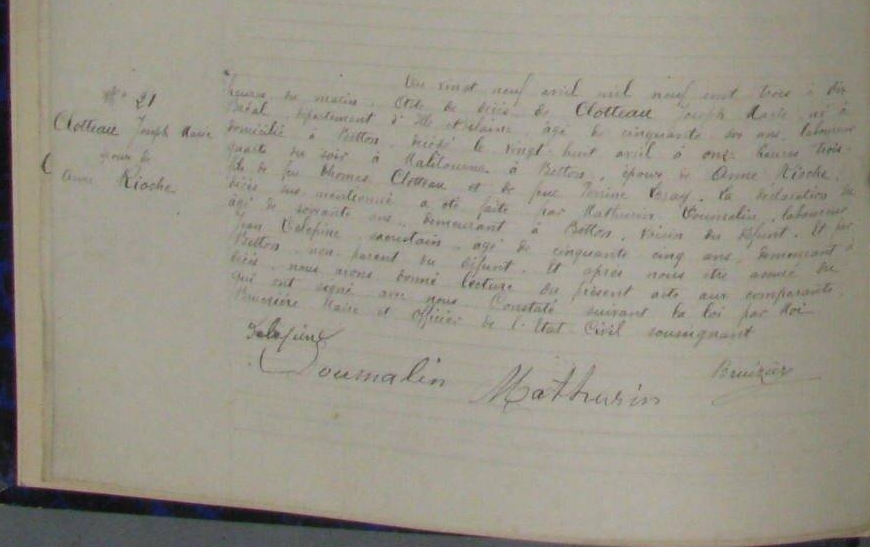 N° 21
Clotteau Joseph Marie
époux de
Anne Rioche
Du vingt neuf avril mil neuf cent trois à dix
heures du matin. Acte de décès de Clotteau Joseph Marie né à
Bréal, département d'Ille et Vilaine, âgé de cinquante six ans, laboureur
domicilié à Betton, décédé le vingt huit avril à onze heures trois
quarts du soir à Malitourne à Betton, époux de Anne Rioche,
fils de feu Thomas Clotteau et de feue Perrine Leray. La déclaration du
décès sus mentionné a été faite par Mathurin Doumalin, laboureur,
âgé de soixante ans, demeurant à Betton, voisin du défunt. Et par
Jean Delépine sacristain âgé de cinquante cinq ans, demeurant à
Betton non parent du défunt. Et après nous être assuré du
décès, nous avons donné lecture du présent acte aux comparants
qui ont signé avec nous. Constaté suivant la loi par Moi
Maire et Officier de l'Etat Civil soussignant
Delépine
Doumalin Mathurin